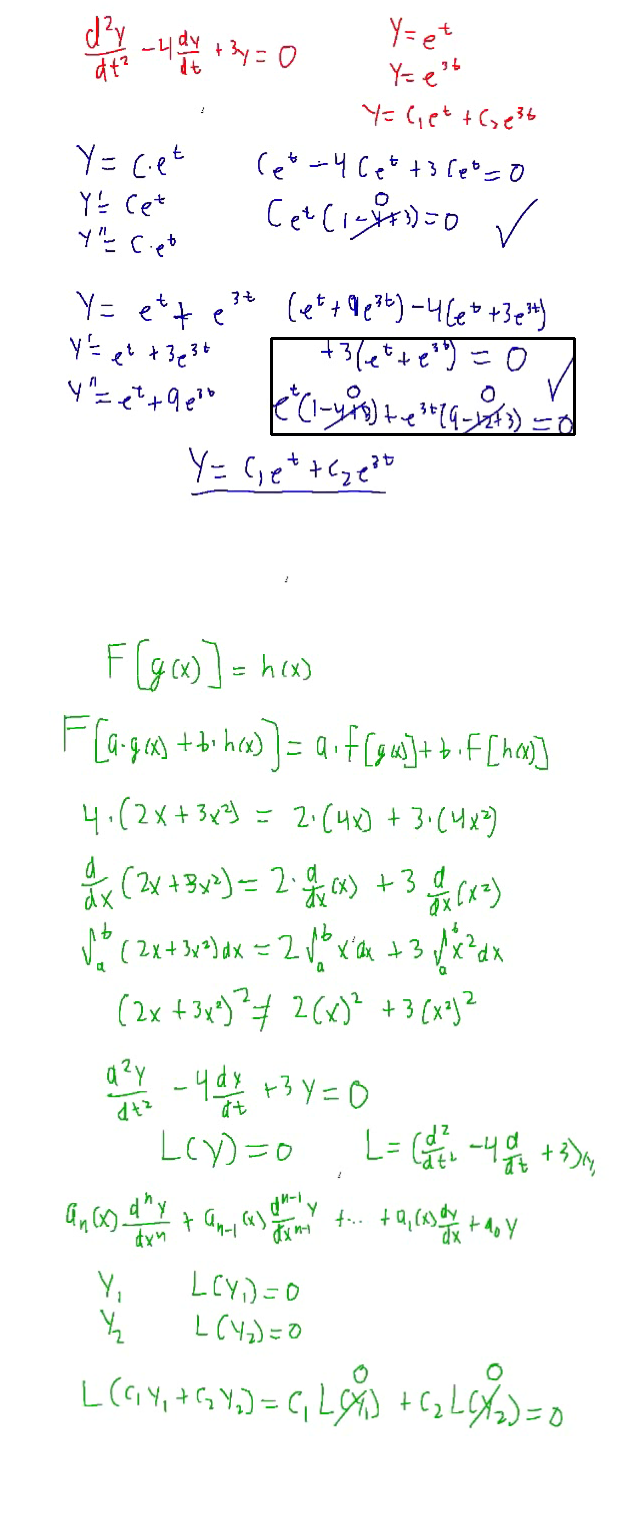 d²y/dt² - 4 dy/dt + 3y = 0
y = e^t
y = e^3t
y = c₁e^t + c₂e^3t
y = c·e^t
y' = ce^t
y'' = c·e^t
ce^t - 4ce^t + 3ce^t = 0
ce^t(1-4+3) = 0 ✓
0
y = e^t + e^3t
y' = e^t + 3e^3t
y'' = e^t + 9e^3t
(e^t + 9e^3t) - 4(e^t + 3e^3t)
+3(e^t + e^3t) = 0
0 0
e^t(1-4+3) + e^3t(9-12+3) = 0 ✓
y = c₁e^t + c₂e^3t
F[g(x)] = h(x)
F[a·g(x) + b·h(x)] = a·f[g(x)] + b·F[h(x)]
4·(2x + 3x²) = 2·(4x) + 3·(4x²)
d/dx (2x + 3x²) = 2·d/dx(x) + 3 d/dx(x²)
∫_a^b (2x + 3x²)dx = 2∫_a^b x dx + 3∫_a^b x²dx
(2x + 3x²)² ≠ 2(x)² + 3(x²)²
d²y/dt² - 4 dy/dt + 3y = 0
L(y) = 0 L = (d²/dt² - 4 d/dt + 3)y
aₙ(x) dⁿy/dxⁿ + aₙ₋₁(x) dⁿ⁻¹y/dxⁿ⁻¹ + ... + a₁(x) dy/dx + a₀y
y₁ L(y₁) = 0
y₂ L(y₂) = 0
0 0
L(c₁y₁ + c₂y₂) = c₁L(y₁) + c₂L(y₂) = 0